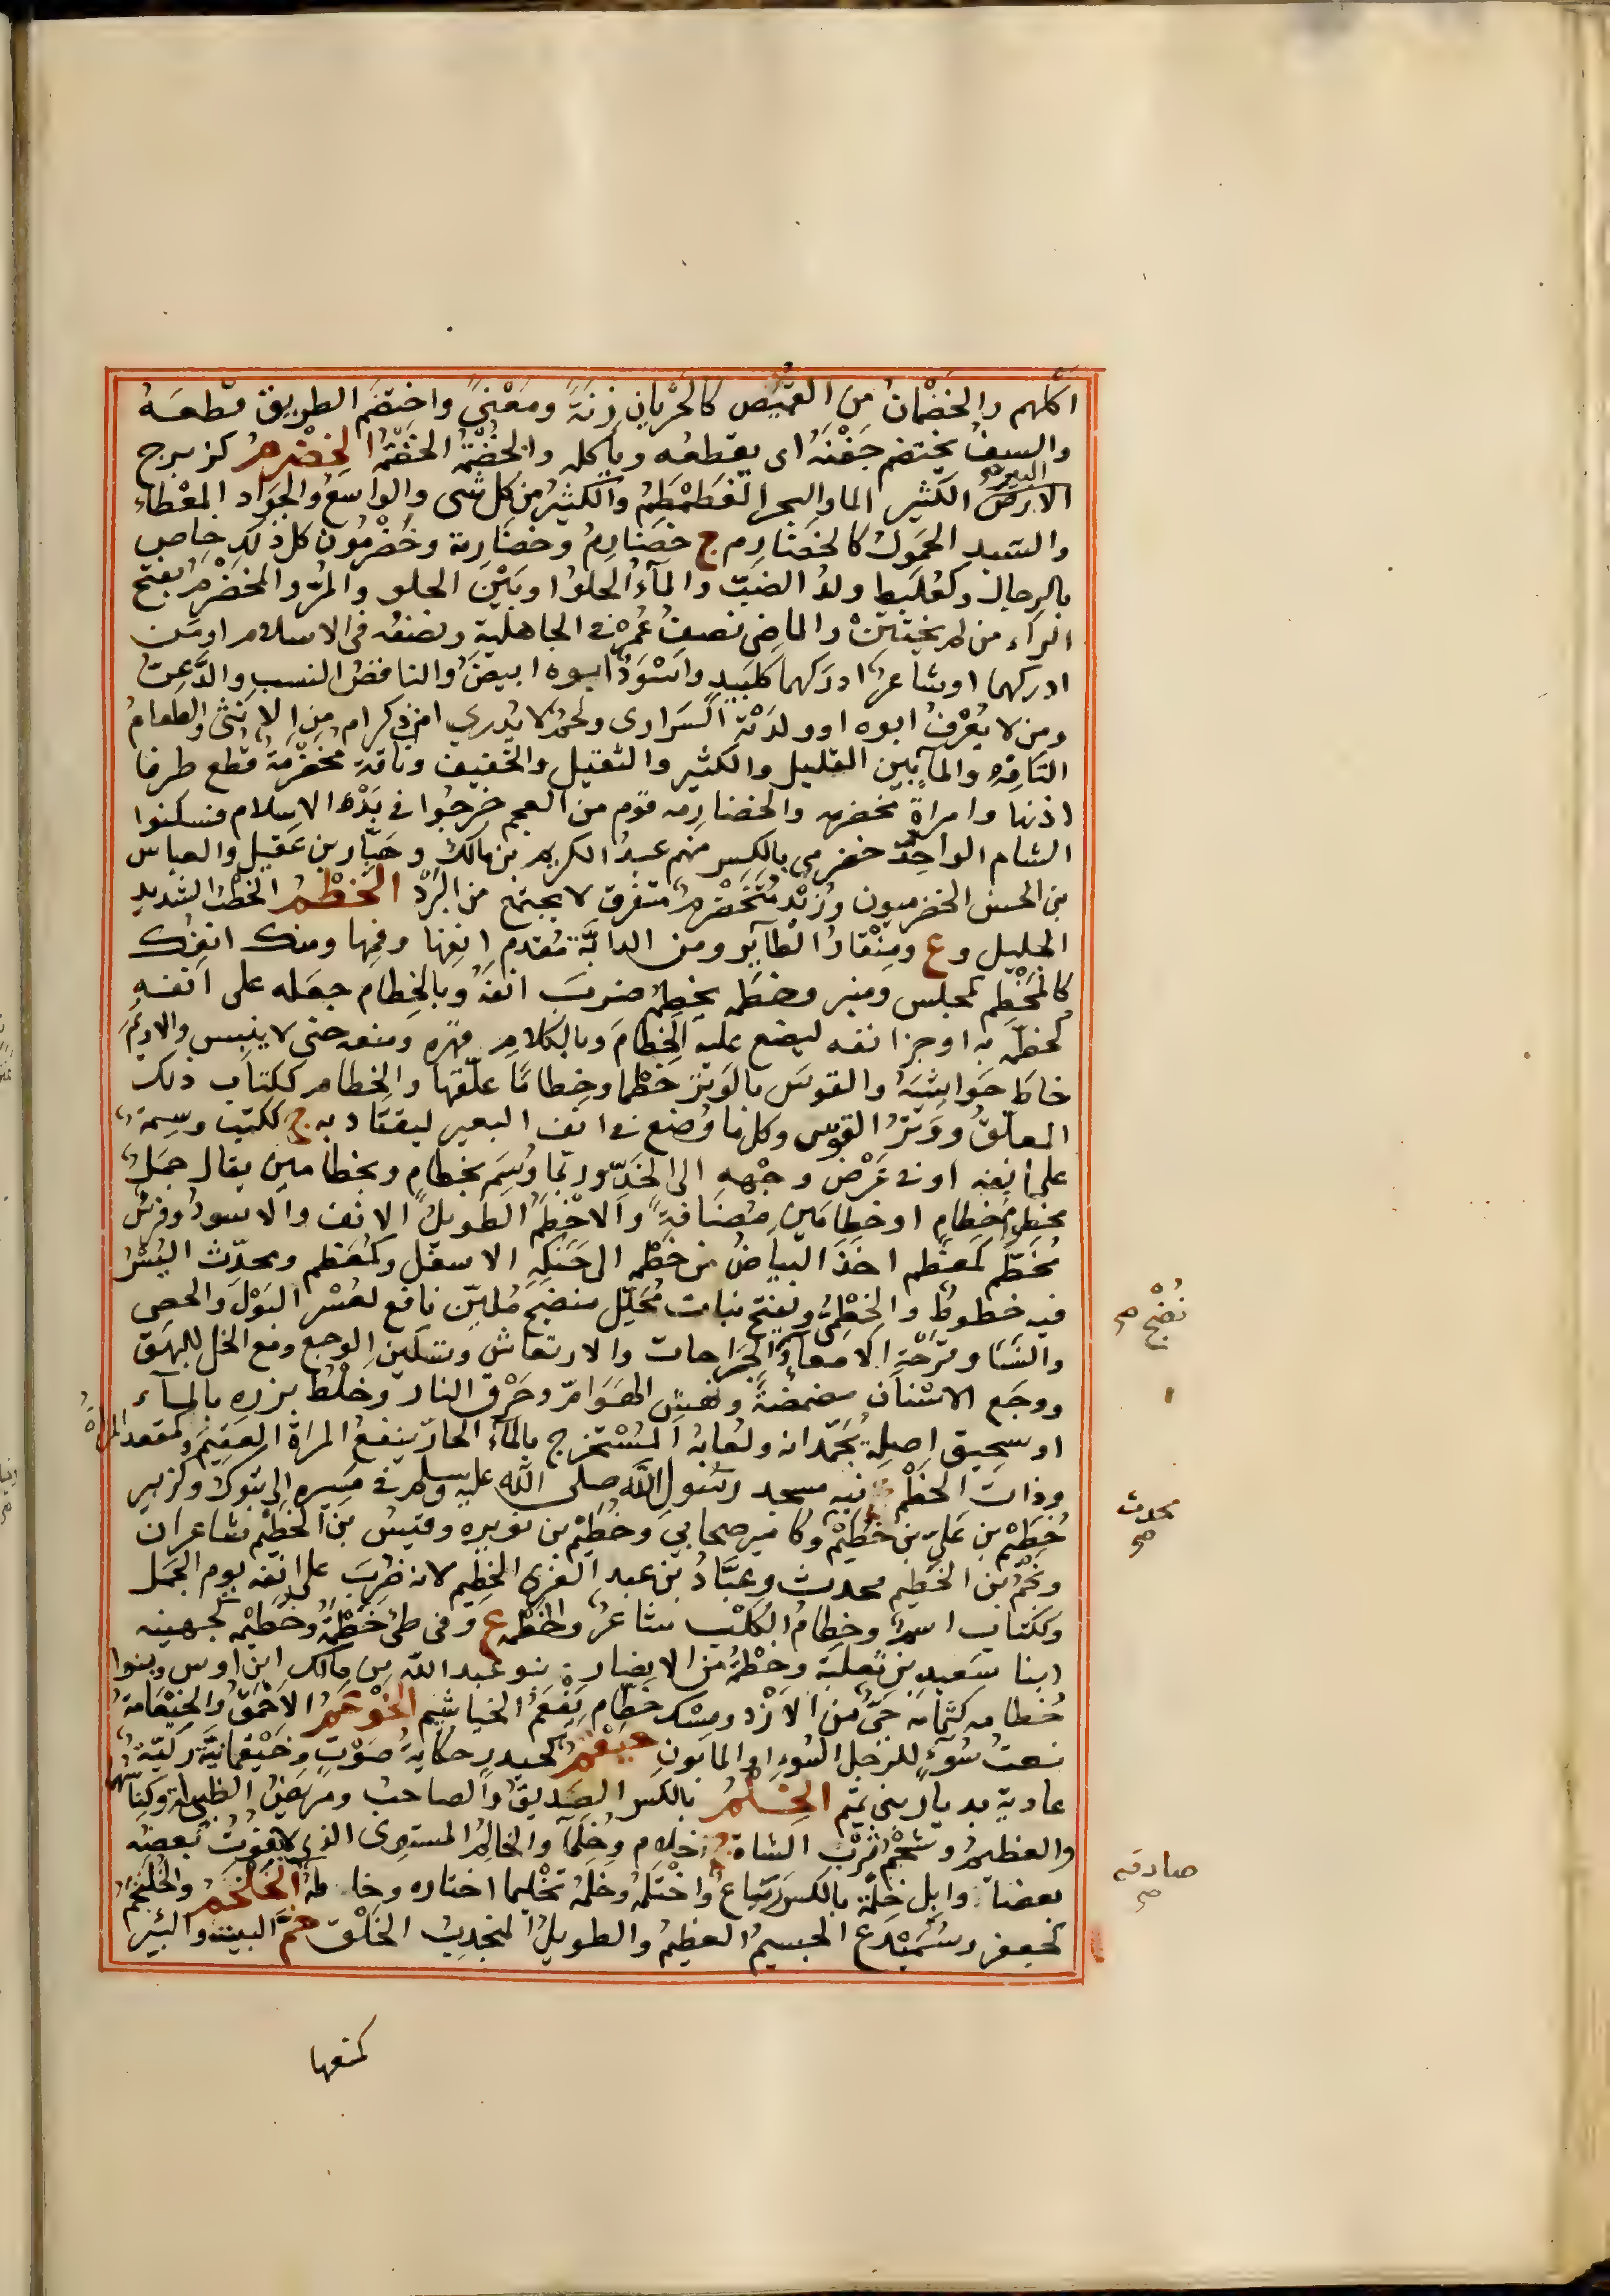 اكلهم والخضمان من القميص كالجربان زنة ومعنى واختضم الطريق قطعه
والسيف يختضم جفنه اى يقطعه وياكله والخضمة الخضرم كزبرج
البير
الارض الكثير الماء والبحر الغطمطم والكثير من كل شى والواسع والجواد المعطاء
والسيد الحمول كالخضارم ج خضارم وخضارمة وخضرمون كل ذلك خاص
بالرجال وكعلبط ولد الضب والماء الحلو او بين الحلو والمر والمخضرم بفتح
الراء من لم يختتن والماضى نصف عمره فى الجاهلية ونصفه فى الاسلام او من
ادركهما او شاعر ادركهما كلبيد واسود ابوه ابيض والناقص النسب والدعى
ومن لا يعرف ابوه او ولدته السرارى ولحم لا يدرى امن ذكر ام من انثى والطعام
التافه والماء بين القليل والكثير والثقيل والخفيف وناقة مخضرمة قطع طرف
اذنها وامراة مخضرمه والخضارمه قوم من العجم خرجوا فى بدء الاسلام فسكنوا
الشام الواحد خضرمى بالكسر منهم عبد الكريم بن مالك وهبار بن عقيل والعباس
بن الحسن الخضرميون وزبد متخضرم متفرق لا يجتمع من البرد الخطم الخطب الشديد
الجليل وع ومنقار الطاير ومن الدابة مقدم انفها وفمها ومنك انفك
كالمخطم كمجلس ومنبر وخطمه يخطمه ضرب انفه وبالخطام جعله على انفه
كخطمه به او جز انفه ليضع عليه الخطام وبالكلام قهره ومنعه حتى لا ينبس والاديم
خاط حواشيه والقوس بالوتر خطما وخطاما علقها والخطام ككتاب ذلك
المعلق ووتر القوس وكل ما وضع فى انف البعير ليقتاد به ج ككتب وسمة
على انفه او فى عرض وجهه الى الخد وربما وسم بخطام وبخطامين يقال جمل
مخطوم خطام او خطامين مضافة والاخطم الطويل الانف والاسود وفرس
مخطم كمعظم اخذ البياض من خطمه الى حنكه الاسفل وكمعظم ومحدث البسر
فيه خطوط والخطمى ويفتح نبات محلل منضج ملين نافع لعسر البول والحصى
نضج صح
والنسا وقرحة الامعاء والجراحات والارتعاش وتسكين الوجع ومع الخل للبهق
ووجع الاسنان مضمضة ونهش الهوام وحرق النار وخلط بزره بالماء
او سحيق اصله يجمدانه ولعابه المستخرج بالماء الحار ينفع المراة العقيم وكمقعد المراة
وذات الخطم فيه مسجد رسول الله صلى الله عليه وسلم فى مسيره الى تبوك وكزبير
محدث صح
خطيم بن على بن خطيم وكامير صحابى وخطيم بن نويره وقيس بن الخطيم شاعران
ونجم بن الخطيم محدث وعباد بن عبد العزى الخطيم لانه ضرب على انفه يوم الجمل
وككتاب اسم وخطام الكلب شاعر والخطمه ع وفى طى خطمة وخطيمه كجهينه
ابنا سعد بن ثعلبة وخطمة من الانصار بنو عبد الله بن مالك ابن اوس وبنوا
خطامه كثمامه حى من الازد ومسك خطام يفعم الخياشيم الخوعم الاحمق والخيعامة
نعت سوء للرجل السوء او المابون خيقم كحيدر حكاية صوت وخيقمانة ركية
عادية بديار بنى تميم الخلم بالكسر الصديق والصاحب ومربض الظبية وكناسها
والعظيم وشحم ثرب الشاة ج اخلام وخلما والخالم المستوى الذى لا يفوت بعضه
صادقه صح
بعضا وابل خلمة بالكسر رتاع واختلمه وخلمه تخليما اختاره وخالمه الخلجم والخليجم
كجعفر وسميدع الجسيم العظيم والطويل المنجذب الخلق خم البيت والبير
كنسها